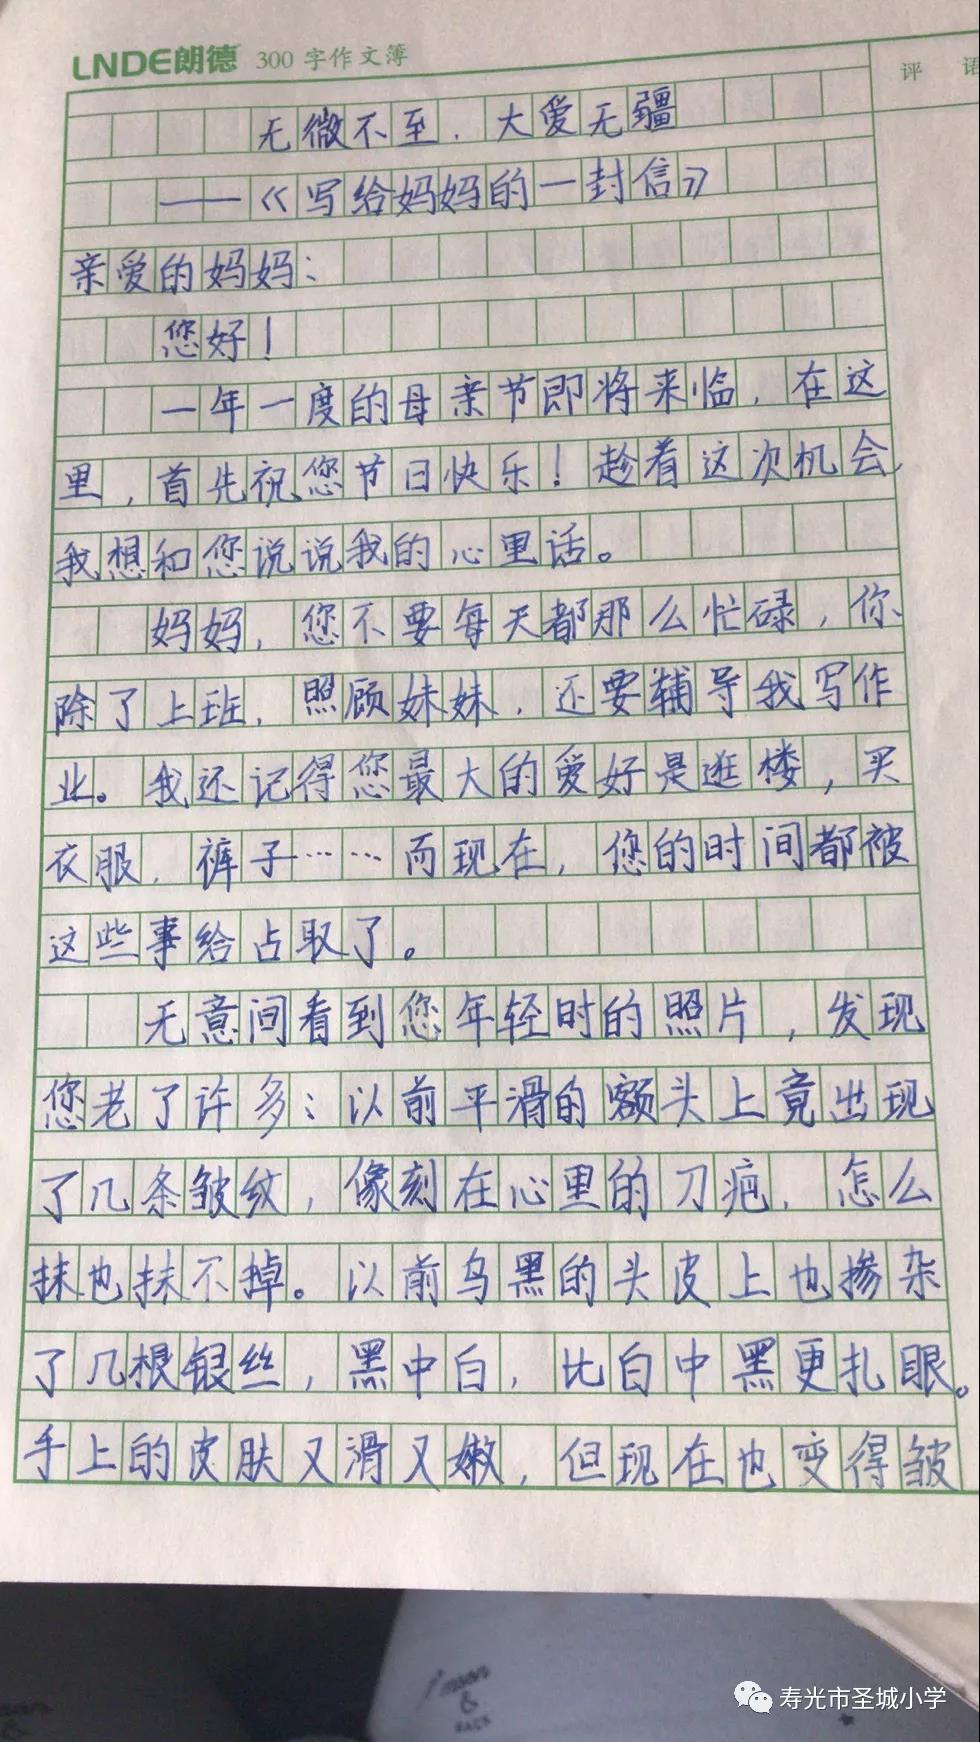 LNDE朗德 300字作文簿
评 语
无微不至，大爱无疆
——《写给妈妈的一封信》
亲爱的妈妈：
您好！
一年一度的母亲节即将来临，在这
里，首先祝您节日快乐！趁着这次机会，
我想和您说说我的心里话。
妈妈，您不要每天都那么忙碌，你
除了上班，照顾妹妹，还要辅导我写作
业。我还记得您最大的爱好是逛楼，买
衣服，裤子……而现在，您的时间都被
这些事给占取了。
无意间看到您年轻时的照片，发现
您老了许多：以前平滑的额头上竟出现
了几条皱纹，像刻在心里的刀疤，怎么
抹也抹不掉。以前乌黑的头皮上也掺杂
了几根银丝，黑中白，比白中黑更扎眼。
手上的皮肤又滑又嫩，但现在也变得皱
&
寿光市圣城小学